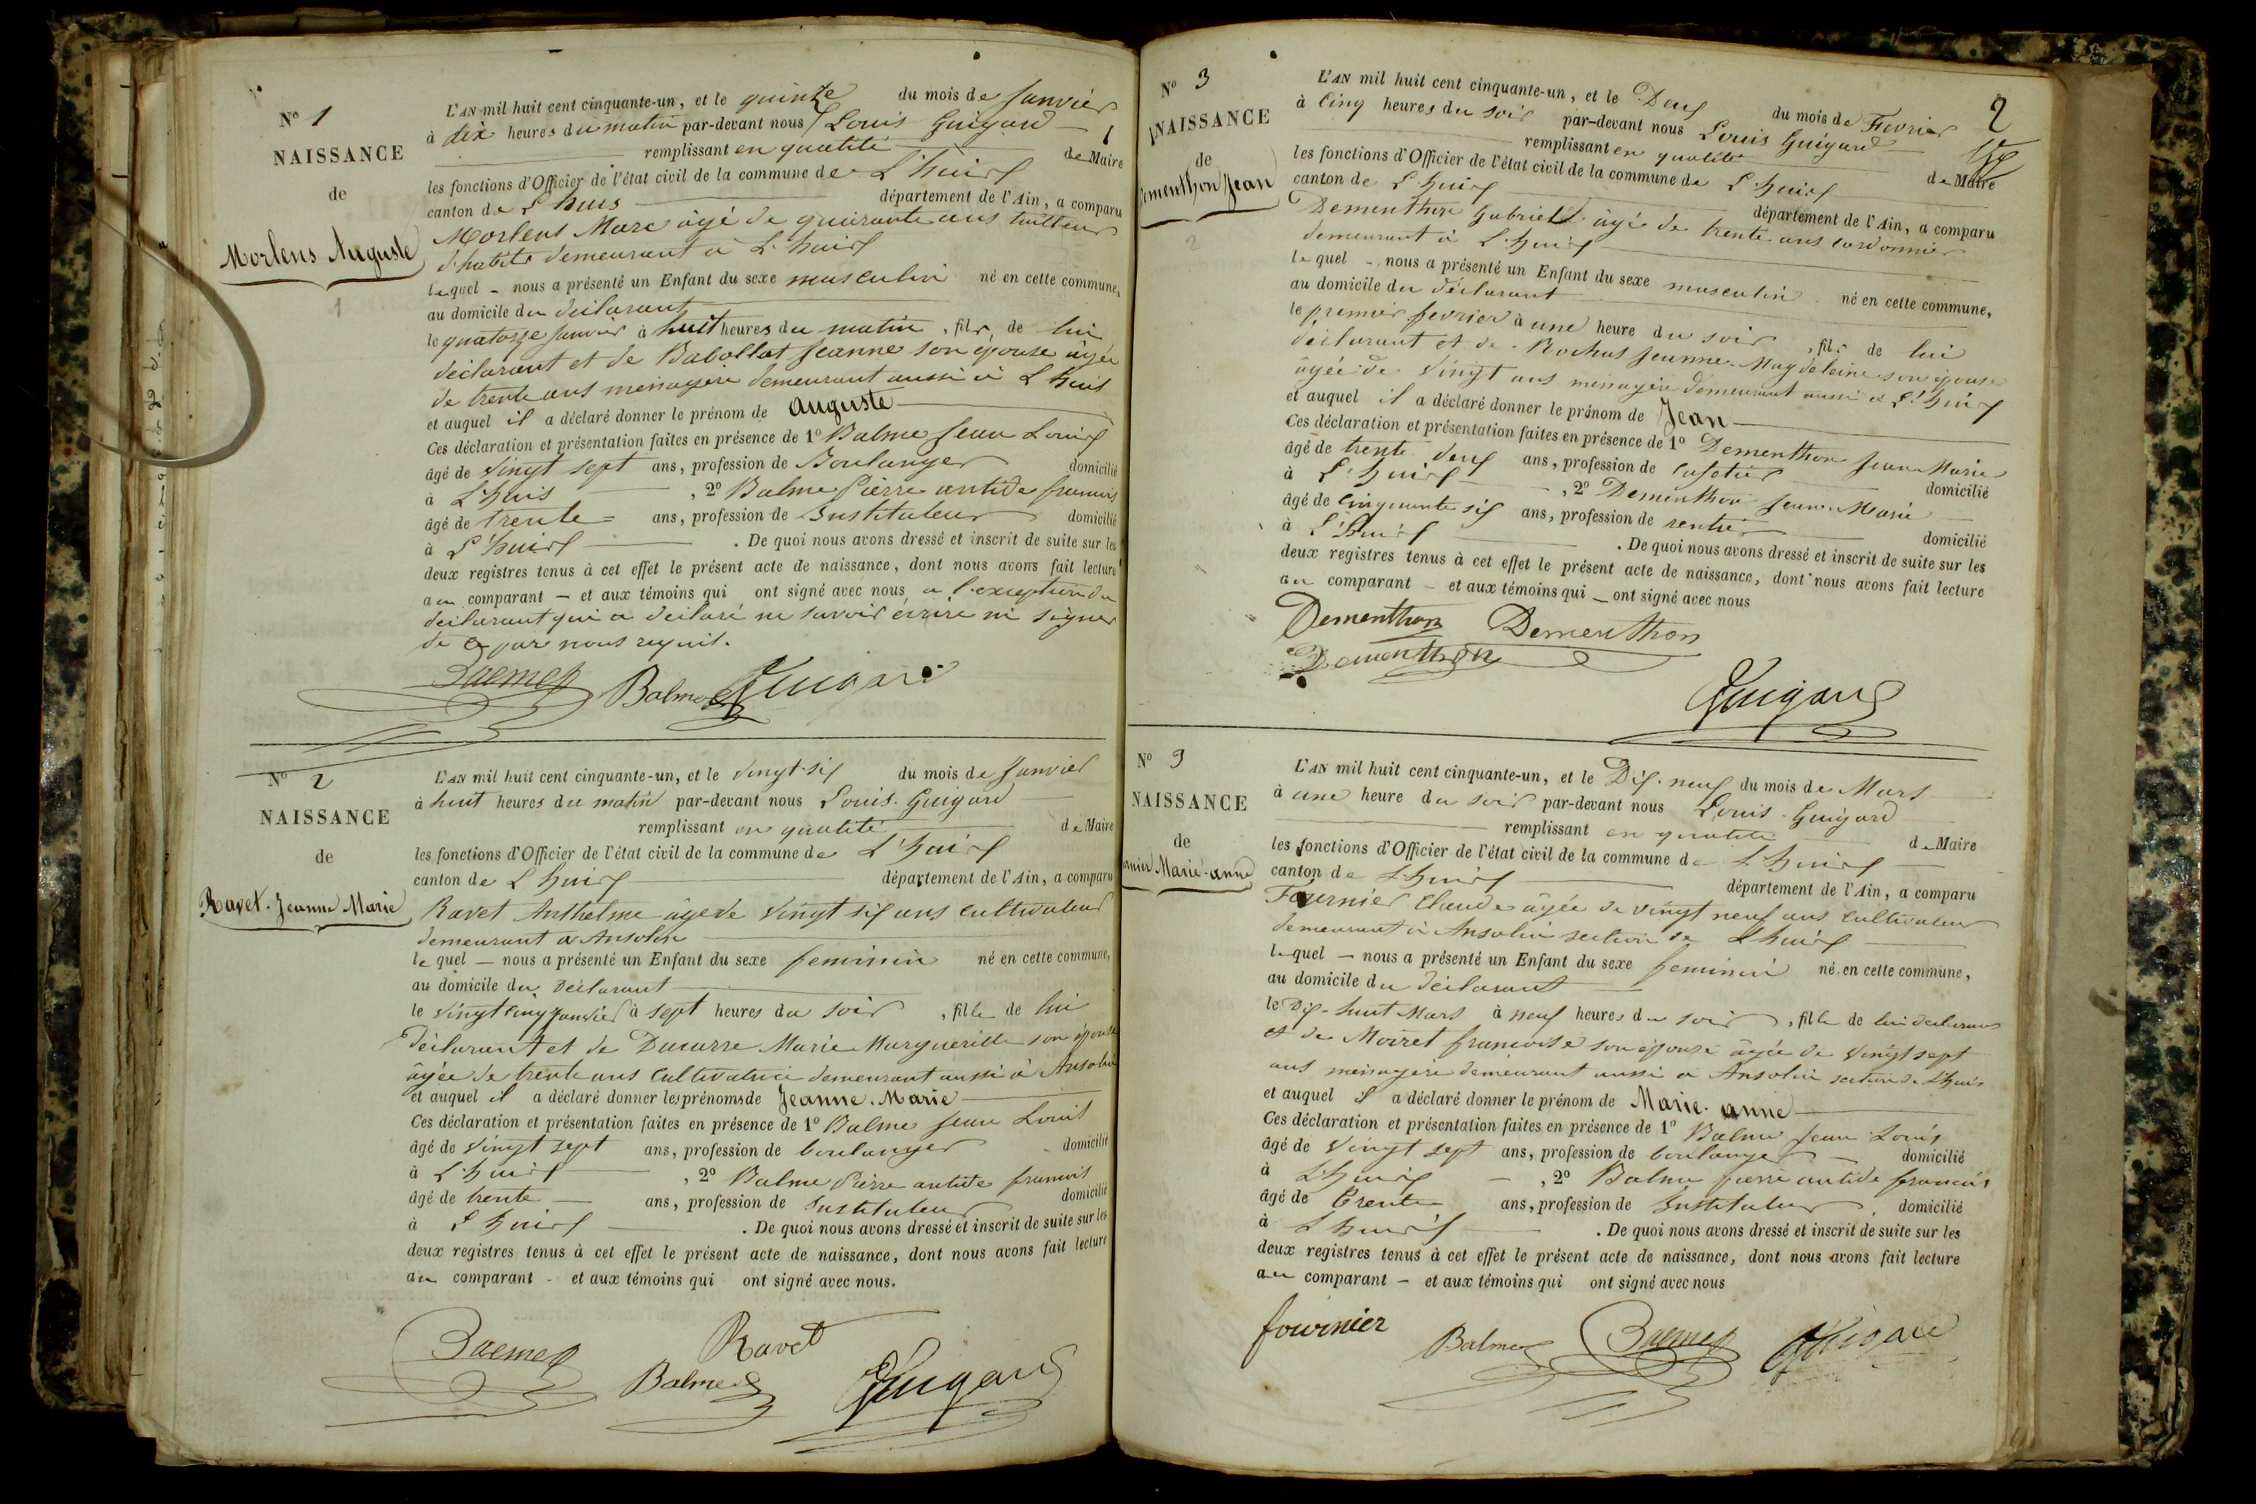 N° 1
NAISSANCE
de
Morlens Auguste
1
L'AN mil huit cent cinquante-un, et le quinze du mois de Janvier
à dix heures du matin par-devant nous Louis Guigard
1
remplissant en qualité de Maire
les fonctions d'Officier de l'état civil de la commune de L'huis
canton de L'huis département de l'Ain, a comparu
Morlens Marc âgé de quarante ans tailleur
d'habits demeurant à L'huis
lequel - nous a présenté un Enfant du sexe masculin né en cette commune,
au domicile du déclarant
le quatorze Janvier à huit heures du matin, fils de lui
déclarant et de Babollat Jeanne son épouse âgée
de trente ans ménagère demeurant aussi à L'huis
et auquel il a déclaré donner le prénom de Auguste
Ces déclaration et présentation faites en présence de 1° Balme Jean Louis
âgé de vingt sept ans, profession de Boulanger domicilié
à L'huis , 2° Balme Pierre antide francois
âgé de trente = ans, profession de Instituteur domicilié
à L'huis . De quoi nous avons dressé et inscrit de suite sur les
deux registres tenus à cet effet le présent acte de naissance, dont nous avons fait lecture
au comparant - et aux témoins qui ont signé avec nous a l'exception du
déclarant qui a déclaré ne savoir écrire ni signer
de ce par nous requit.
Balme Guigard
N° 2
NAISSANCE
de
Ravet. Jeanne Marie
L'AN mil huit cent cinquante-un, et le vingt-six du mois de Janvier
à huit heures du matin par-devant nous Louis. Guigard
remplissant en qualité de Maire
les fonctions d'Officier de l'état civil de la commune de L'huis
canton de L'huis département de l'Ain, a comparu
Ravet Anthelme âgé de vingt six ans cultivateur
demeurant à Ansolin
lequel - nous a présenté un Enfant du sexe feminin né en cette commune,
au domicile du déclarant
le vingt cinq janvier à sept heures du soir , fille de lui
déclarant et de Ducarre Marie Margueritte son épouse
âgée de trente ans cultivatrice demeurant aussi à Ansolin
et auquel il a déclaré donner les prénoms de Jeanne. Marie
Ces déclaration et présentation faites en présence de 1° Balme Jean Louis
âgé de vingt sept ans, profession de boulanger domicilié
à L'huis , 2° Balme Pierre antide francois
âgé de trente - ans, profession de Instituteur domicilié
à L'huis . De quoi nous avons dressé et inscrit de suite sur les
deux registres tenus à cet effet le présent acte de naissance, dont nous avons fait lecture
au comparant - et aux témoins qui ont signé avec nous.
Ravet
Balme Guigard
N° 3
NAISSANCE
de
ementhon Jean
2
2
L'AN mil huit cent cinquante-un, et le Deux du mois de Fevrier
à cinq heures du soir par-devant nous Louis Guigard
remplissant en qualité de Maire
les fonctions d'Officier de l'état civil de la commune de L'huis
canton de L'huis département de l'Ain, a comparu
Dementhon Gabriel âgé de trente ans cordonnier
demeurant à L'huis
lequel - nous a présenté un Enfant du sexe masculin né en cette commune,
au domicile du déclarant
le premier fevrier à une heure du soir , fils de lui
déclarant et de Rochas Jeanne-Magdeleine son épouse
âgée de vingt ans ménagère demeurant aussi à L'huis
et auquel il a déclaré donner le prénom de Jean
Ces déclaration et présentation faites en présence de 1° Dementhon Jean Marie
âgé de trente deux ans, profession de cafetier domicilié
à L'huis , 2° Dementhon Jean-Marie
âgé de cinquante six ans, profession de rentier domicilié
à L'huis . De quoi nous avons dressé et inscrit de suite sur les
deux registres tenus à cet effet le présent acte de naissance, dont nous avons fait lecture
au comparant - et aux témoins qui - ont signé avec nous
Dementhon Dementhon
Dementhon
Guigard
N° 3
NAISSANCE
de
rnier Marie-anne
L'AN mil huit cent cinquante-un, et le Dix-neuf du mois de Mars
à une heure du soir par-devant nous Louis Guigard
remplissant en qualité de Maire
les fonctions d'Officier de l'état civil de la commune de L'huis
canton de L'huis département de l'Ain, a comparu
Fournier Claude âgée de vingt neuf ans cultivateur
demeurant à Ansolin section de L'huis
lequel - nous a présenté un Enfant du sexe feminin né en cette commune,
au domicile du déclarant
le Dix-huit Mars à neuf heures du soir , fille de lui déclarant
et de Moiret francoise son épouse âgée de vingt sept
ans ménagère demeurant aussi à Ansolin section de L'huis
et auquel il a déclaré donner le prénom de Marie-anne
Ces déclaration et présentation faites en présence de 1° Balme Jean Louis
âgé de vingt sept ans, profession de boulanger domicilié
à L'huis - , 2° Balme pierre antide francois
âgé de trente ans, profession de Instituteur domicilié
à L'huis . De quoi nous avons dressé et inscrit de suite sur les
deux registres tenus à cet effet le présent acte de naissance, dont nous avons fait lecture
au comparant - et aux témoins qui ont signé avec nous
fournier Balme Guigard